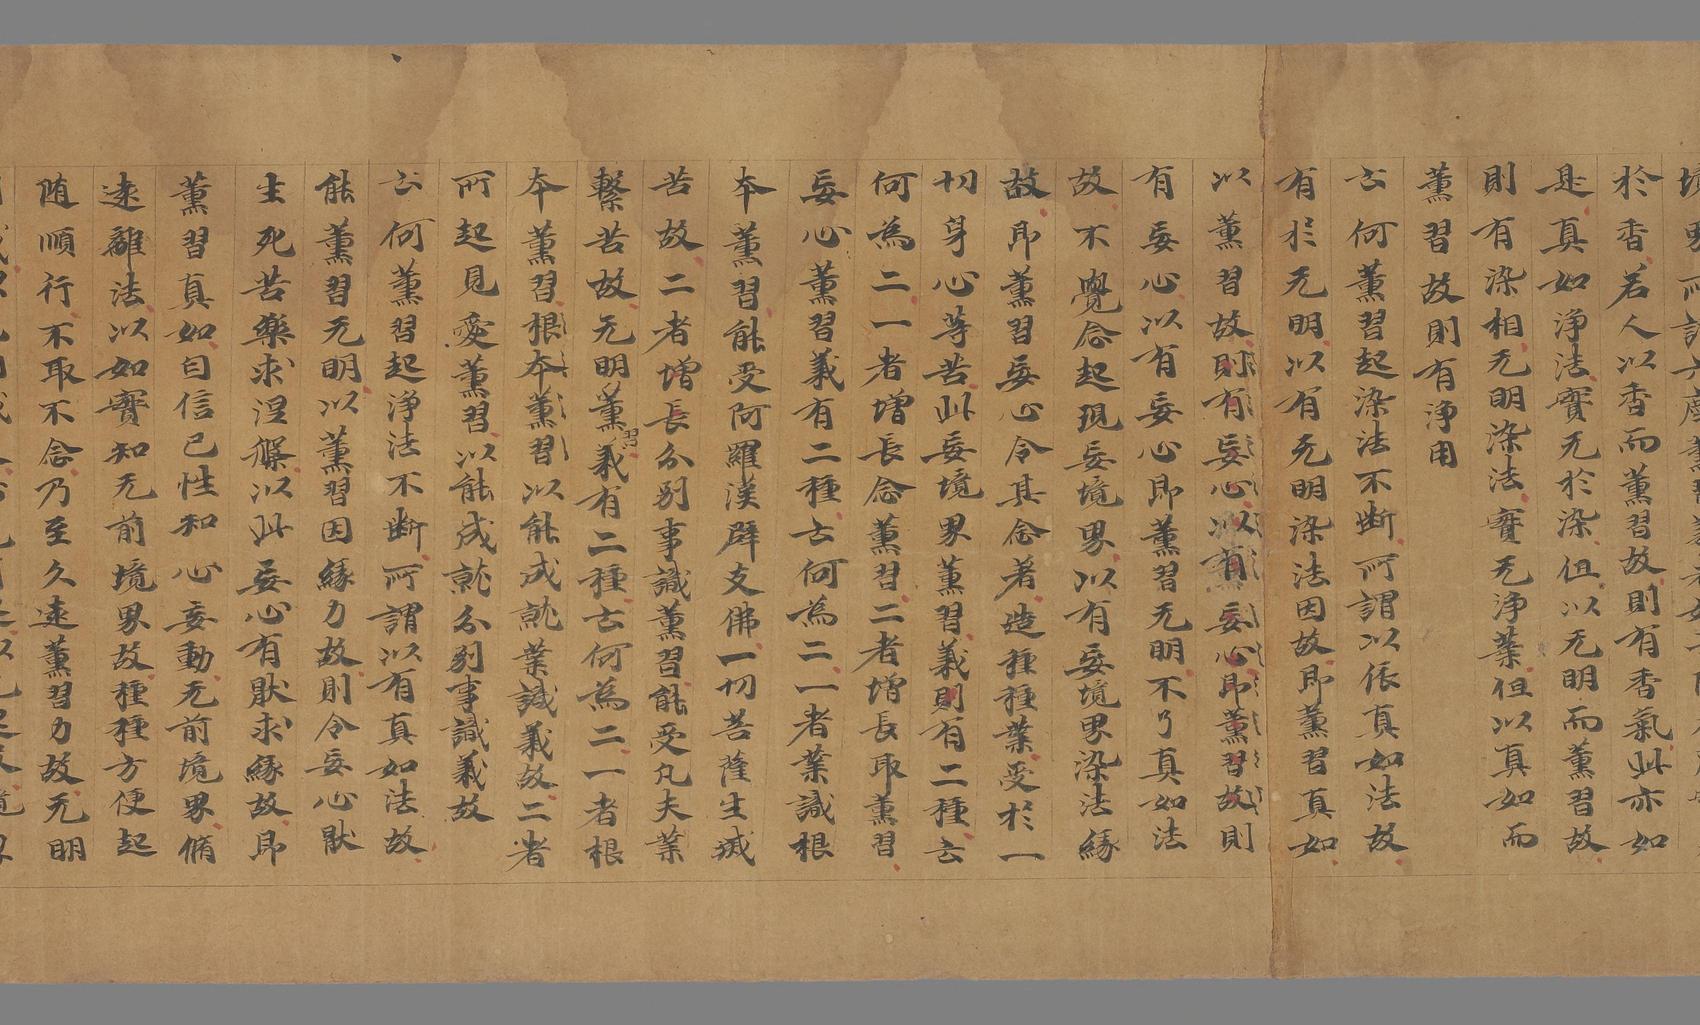 於香若人以香而薰習故則有香氣此亦如
是真如淨法實无於染但以无明而薰習故
則有染相无明染法實无淨業但以真如而
薰習故則有淨用
云何薰習起染法不断所謂以依真如法故
有於无明以有无明染法因故即薰習真如
以薰習故則有妄心以有妄心即薰習故則
有妄心以有妄心即薰習无明不了真如法
故不覺念起現妄境界以有妄境界染法緣
故即薰習妄心令其念著造種種業受於一
切身心等苦此妄境界薰習義則有二種云
何為二一者增長念薰習二者增長取薰習
妄心薰習義有二種云何為二一者業識根
本薰習能受阿羅漢辟支佛一切菩薩生滅
苦故二者增長分別事識薰習能受凡夫業
繫苦故无明薰習義有二種云何為二一者根
本薰習根本薰習以能成就業識義故二者
所起見愛薰習以能成就分別事識義故
云何薰習起淨法不断所謂以有真如法故
能薰習无明以薰習因緣力故則令妄心猒
生死苦樂求涅槃以此妄心有猒求緣故即
薰習真如自信己性知心妄動无前境界脩
遠離法以如實知无前境界故種種方便起
随順行不取不念乃至久遠薰習力故无明